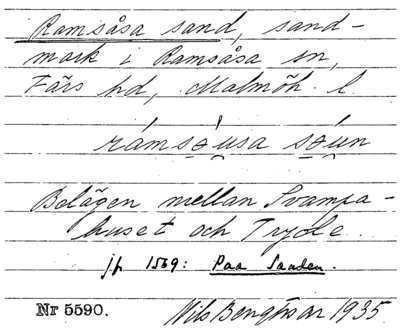 Ramsåsa sand, sand-
mark i Ramsåsa sn,
Färs hd, Malmöh. l.
rámsə̯u̯sa sə̯u̯n
Belägen mellan Svampa-
huset och Tryde.
jfr 1569: Paa Sanden.
Nr 5590.
Nils Bengtsson 1935